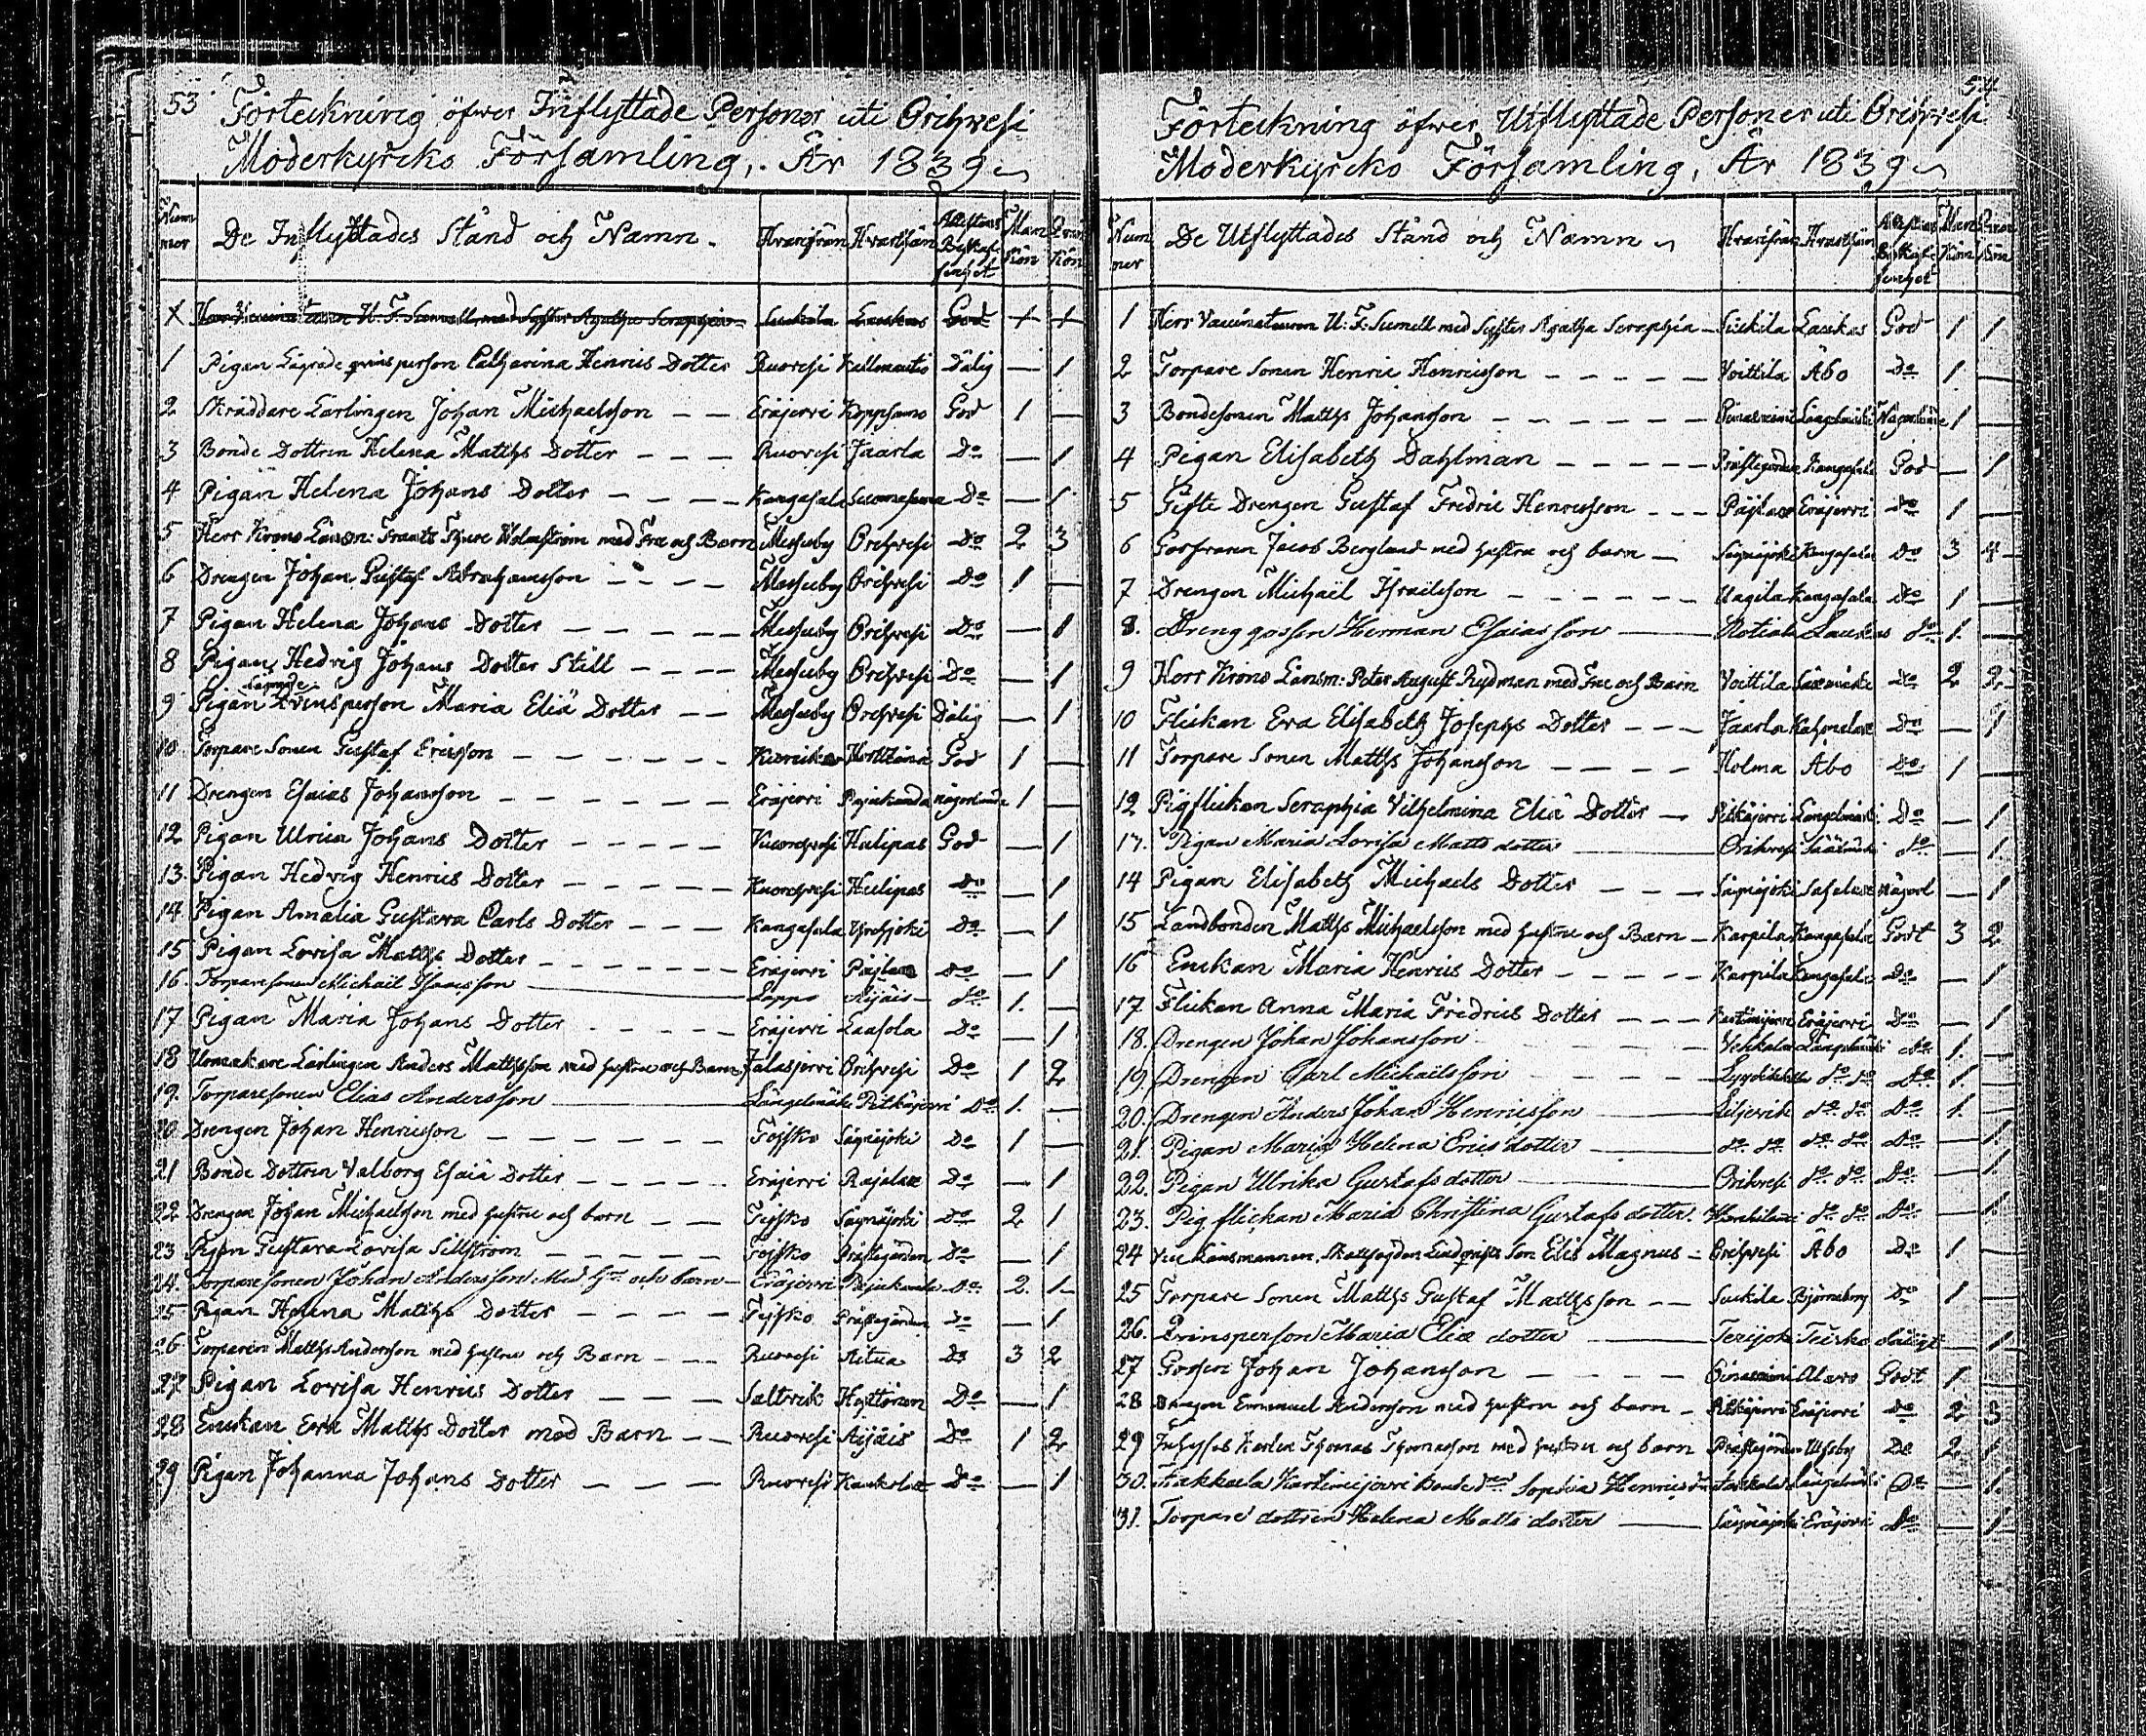 53
Förteckning öfver Inflyttade Personer uti Orihvesi
Moderkyrcko Församling, År 1839
Num mer De Inflyttades Stånd och Namn. Hvarifrån Hvarthän Attestens Beskaffenhet Man Kön Qvin Kön
X Herr Vaccinateuren U. F. Sumell med Syster Agatha Seraphia Suckila Laukas God 1 1
1 Pigan Lägrade qvinsperson Catharina Henrics Dotter Ruovesi Dålig — 1
2 Skräddare Lärlingen Johan Michaelsson Eräjervi Koppsamo God 1 —
3 Bonde Dottren Helena Matths Dotter Ruovesi Jaarla Do — 1
4 Pigan Helena Johans Dotter Kangasala Do — 1
5 Herr Krono Länsm: Frants Thure Holmström med Fru och Barn Messuby Orihvesi Do 2 3
6 Drengen Johan Gustaf Abrahamsson Messuby Orihvesi Do 1 —
7 Pigan Helena Johans Dotter Messuby Orihvesi Do — 1
8 Pigan Hedvig Johans Dotter Still Messuby Orihvesi Do — 1
9 Pigan Lägrade Qvinsperson Maria Eliä Dotter Messuby Orihvesi Dålig — 1
10 Torpare Sonen Gustaf Ericsson God 1 —
11 Drengen Esaias Johansson Eräjervi Pajukanda Någorlunda 1 —
12 Pigan Ulrica Johans Dotter Kuorehvesi Hulipas God — 1
13. Pigan Hedvig Henrics Dotter Kuorehvesi Hulipas Do — 1
14 Pigan Amalia Gustava Carls Dotter Kangasala Do — 1
15 Pigan Lovisa Matths Dotter Eräjervi Päjlax Do — 1
16. Torparesonen Michaël Isaacsson Loppo Äijäis do 1. —
17 Pigan Maria Johans Dotter Eräjervi Laasola Do — 1
18 Urmakare Lärlingen Anders Mathsson med hustru och Barn Jalasjervi Orihvesi Do 1 2
19. Torparesonen Elias Andersson Längelmäki Pitkäjervi Do 1. —
20 Drengen Johan Henricsson Tojsko Säynäjoki Do 1 —
21 Bonde Dottren Valborg Esaiä Dotter Eräjervi Rajalax Do — 1
22 Drengen Johan Michaelsson med hustru och barn Tejsko Säynäjoki Do 2 1
23 Pigan Gustava Lovisa Sillström Tojsko Prästegården Do — 1
24. Torparesonen Johan Andersson Med Hu och barn Eräjervi Pajukanda Do 2. 1
25 Pigan Helena Matths Dotter Tejsko Prästegården Do — 1
26 Torparen Matths Andersson med hustru och Barn Ruovesi Aitua Do 3 2
27 Pigan Lovisa Henrics Dotter Saltvik Hyttinen Do — 1
28 Enckan Eva Matths Dotter med Barn Ruovesi Äijäis Do 1 2
29 Pigan Johanna Johans Dotter Ruovesi Do — 1
54
Förteckning öfver Utflyttade Personer uti Orihvesi
Moderkyrcko Församling, År 1839
Num mer De Utflyttades Stånd och Namn Hvarifrån Hvarthän Attestens Beskaffenhet Man Kön Qvin Kön
1 Herr Vaccinateuren U. F. Sumell med Syster Agatha Seraphia Suckila Laukas God 1 1
2 Torpare Sonen Henric Henricsson Voittila Åbo Do 1 —
3 Bondesonen Matths Johansson Längelmäki Någorlunda 1 —
4 Pigan Elisabeth Dahlman Prästegården Kangasala God — 1
5 Gifte Drengen Gustaf Fredric Henricsson Päjlax Eräjervi Do 1 —
6 Gosfvaren Jacob Berglund med hustru och barn Säynäjoki Kangasala Do 3 4
7 Drengen Michaël Israelsson Uagila Kangasala Do 1 —
8. Dreng gossen Herman Esaiasson Laukas do 1. —
9 Herr Krono Länsm: Peter August Rydman med Fru och Barn Voittila Do 2 2
10 Flickan Eva Elisabeth Josephs Dotter Jaarla Do — 1
11 Torpare Sonen Matths Johansson Holma Åbo Do 1 —
12 Pigflickan Seraphia Vilhelmina Eliä Dotter Pitkäjervi Längelmäki Do — 1
13. Pigan Maria Lovisa Matts dotter Orihvesi do — 1.
14 Pigan Elisabeth Michaels Dotter Säynäjoki Någorl — 1
15 Landbonden Matths Michaelsson med hustru och Barn Karpila Kangasala Godt 3 2
16 Enckan Maria Henrics Dotter Karpila Kangasala Do — 1
17 Flickan Anna Maria Fredrics Dotter Eräjervi Do — 1
18. Drengen Johan Johansson Vehkala Längelmäki do 1. —
19. Drengen Carl Michaelsson do do do 1. —
20. Drengen Anders Johan Henricsson Siljevik do do Do 1. —
21. Pigan Maria Helena Erics dotter do do do do Do — 1.
22. Pigan Ulrika Gustafs dotter Orihvesi do do Do — 1.
23. Pig flickan Maria Christina Gustafs dotter. do do Do — 1.
24 Vice Länsmannen, Skattfogden Lindqvists Son Elis Magnus Orihvesi Åbo Do 1 —
25 Torpare Sonen Matths Gustaf Mathsson Suckila Björneborg Do 1 —
26. Qvinsperson Maria Eliæ dotter Teisko dåligt — 1
27 Gossen Johan Johansson Alavo Godt 1 —
28 Drengen Emmanuel Andersson med hustru och barn Pitkäjervi Eräjervi Do 2 3
29 Inhyses Karlen Thomas Thomasson med hustru och barn Prästegården Ulfsby Do 2 1
30. Hakkaela Hartineijervi Bonde dn Sophia Henrics dr Längelmäki Do — 1.
31. Torpare dottren Helena Matts dotter Säynäjoki Eräjervi Do — 1.